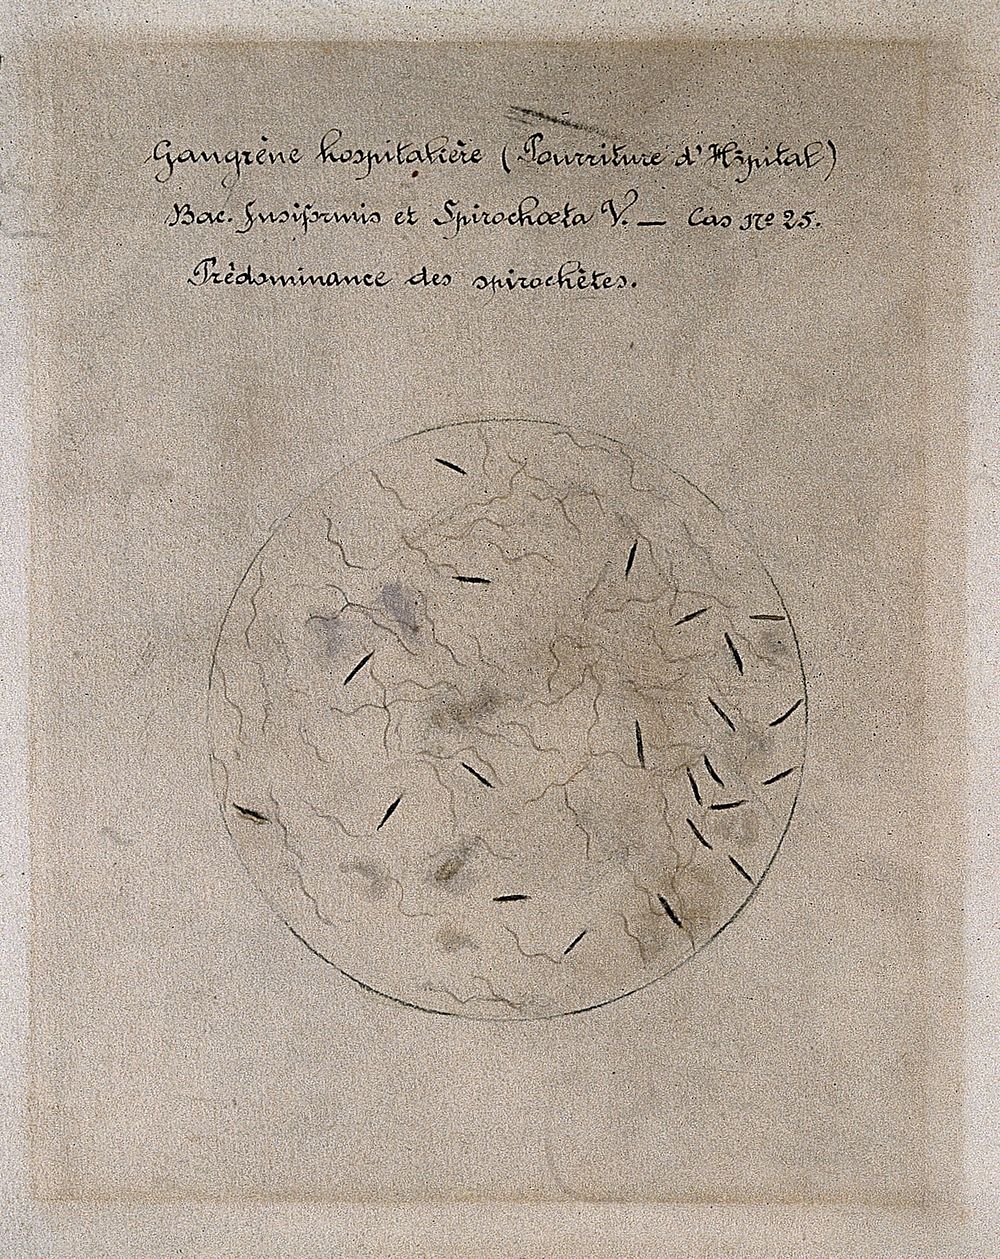 Gangrène hospitalière (Pourriture d'Hôpital)
Bac. fusiformis et Spirochœta V. — Cas nº 25.
Prédominance des spirochètes.